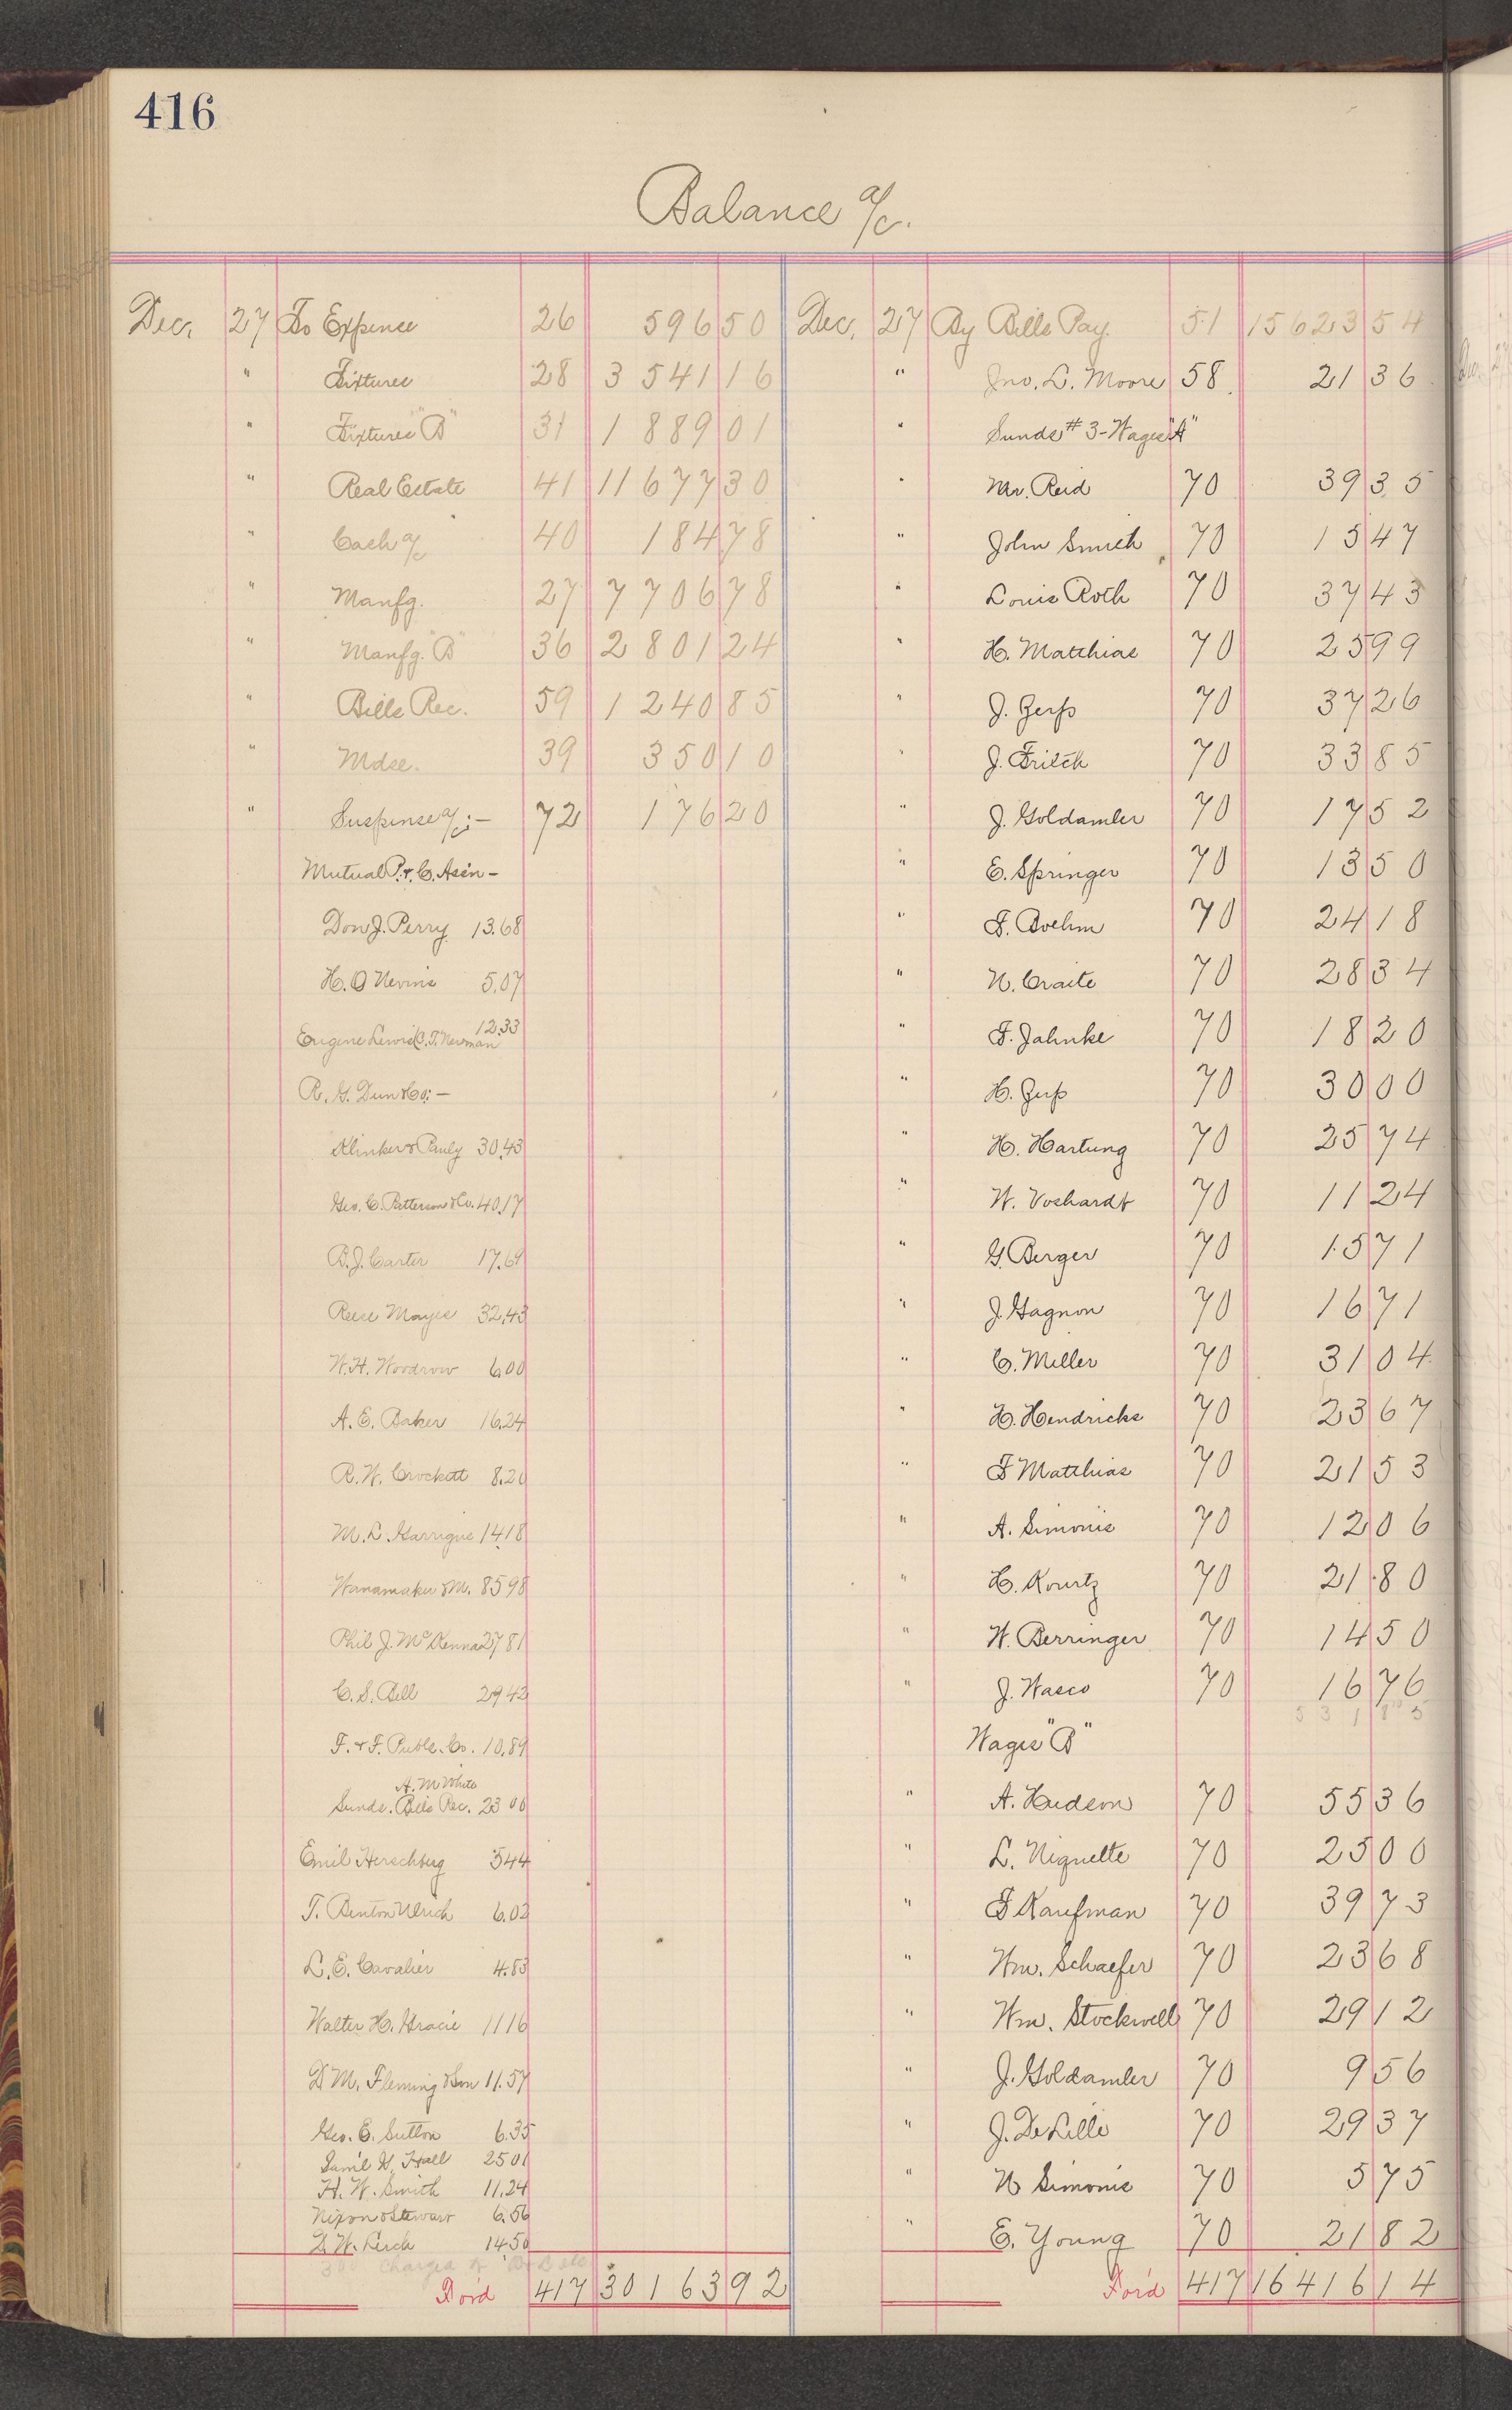 416
Balance a/c.
Dec. 27 To Expense 26 596 50
" Fixtures 28 3541 16
" Fixtures "B" 31 1889 01
" Real Estate 41 11677 30
" Cash a/c 40 184 78
" Manfg. 27 7706 78
" Manfg. "B" 36 2801 24
" Bills Rec. 59 1240 85
" Mdse. 39 350 10
" Suspense a/c :- 72 176 20
Mutual P. & C. Ass'n -
Don J. Perry 13.68
H. O Nevins 5.07
12.33
Eugene Lewis C. T. Newman
R. G. Dun & Co; -
Klinker & Pauly 30.43
Geo. C. Patterson & Co. 40.17
B. J. Carter 17.69
Reese Mayes 32.43
W. H. Woodrow 6.00
A. E. Baker 16.24
R. W. Crockett 8.20
M. L. Garrigue 14.18
Wanamaker & M. 85 98
Phil J. McKenna 27 81
C. S. Bell 29 42
F. & F. Publs. Co. 10.89
A. M White
Sunds. Bills Rec. 23 00
Emil Herschberg 5 44
T. Benton Ulrich 6.02
L. E. Cavalier 4.83
Walter H. Gracie 11 16
D M. Fleming & Son 11.57
Geo. E. Sutton 6.35
Saml H. Hall 25 01
H. W. Smith 11.24
Nixon & Stewart 6.56
D. W. Lerch 14.50
Charged
For'd 417 30163 92
Dec. 27 By Bills Pay. 51 15623 54
" Jno. L. Moore 58 21 36
" Sunds # 3 - Wages "A"
" Mr. Reid 70 39 35
" John Smith 70 15 47
" Louis Roth 70 37 43
" H. Matthias 70 25 99
" J. Gerss 70 37 26
" J. Fritch 70 33 85
" J. Goldamler 70 17 52
" E. Springer 70 13 50
" F. Boehm 70 24 18
" N. Craite 70 28 34
" F. Jahnke 70 18 20
" H. Gerss 70 30 00
" H. Hartung 70 25 74
" W. Voshardt 70 11 24
" G. Berger 70 15 71
" J. Gagnon 70 16 71
" C. Miller 70 31 04
" H. Hendricks 70 23 67
" F Matthias 70 21 53
" A. Simonis 70 12 06
" H. Kourtz 70 21 80
" W. Berringer 70 14 50
" J. Wasco 70 16 76
5 3 1 8 5
Wages "B"
" A. Hudson 70 55 36
" L. Niquette 70 25 00
" F Kaufman 70 39 73
" Wm. Schaefer 70 23 68
" Wm. Stockwell 70 29 12
" J. Goldamler 70 9 56
" J. De Lille 70 29 37
" N Simonis 70 5 75
" E. Young 70 21 82
For'd 417 16416 14